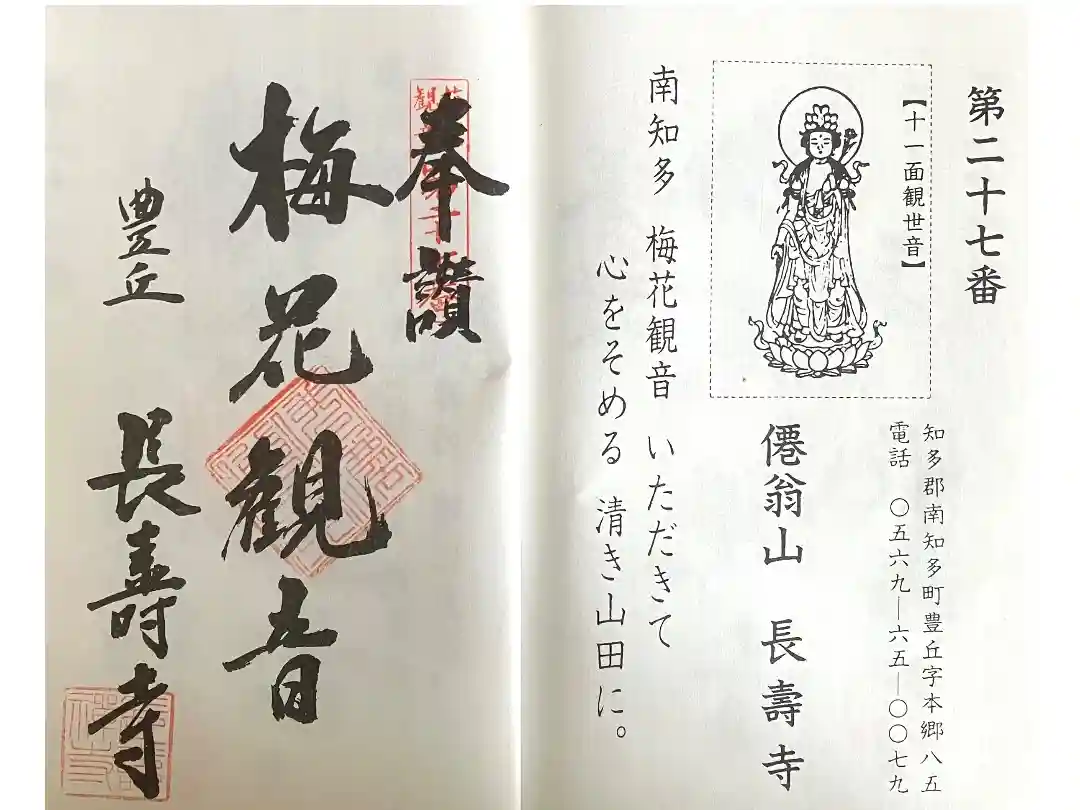 第二十七番
【十一面観世音】
知多郡南知多町豊丘字本郷八五
電話 〇五六九―六五―〇〇七九
僊翁山 長壽寺
南知多 梅花観音 いただきて
心をそめる 清き山田に。
奉讃
梅花観音
豊丘 長壽寺